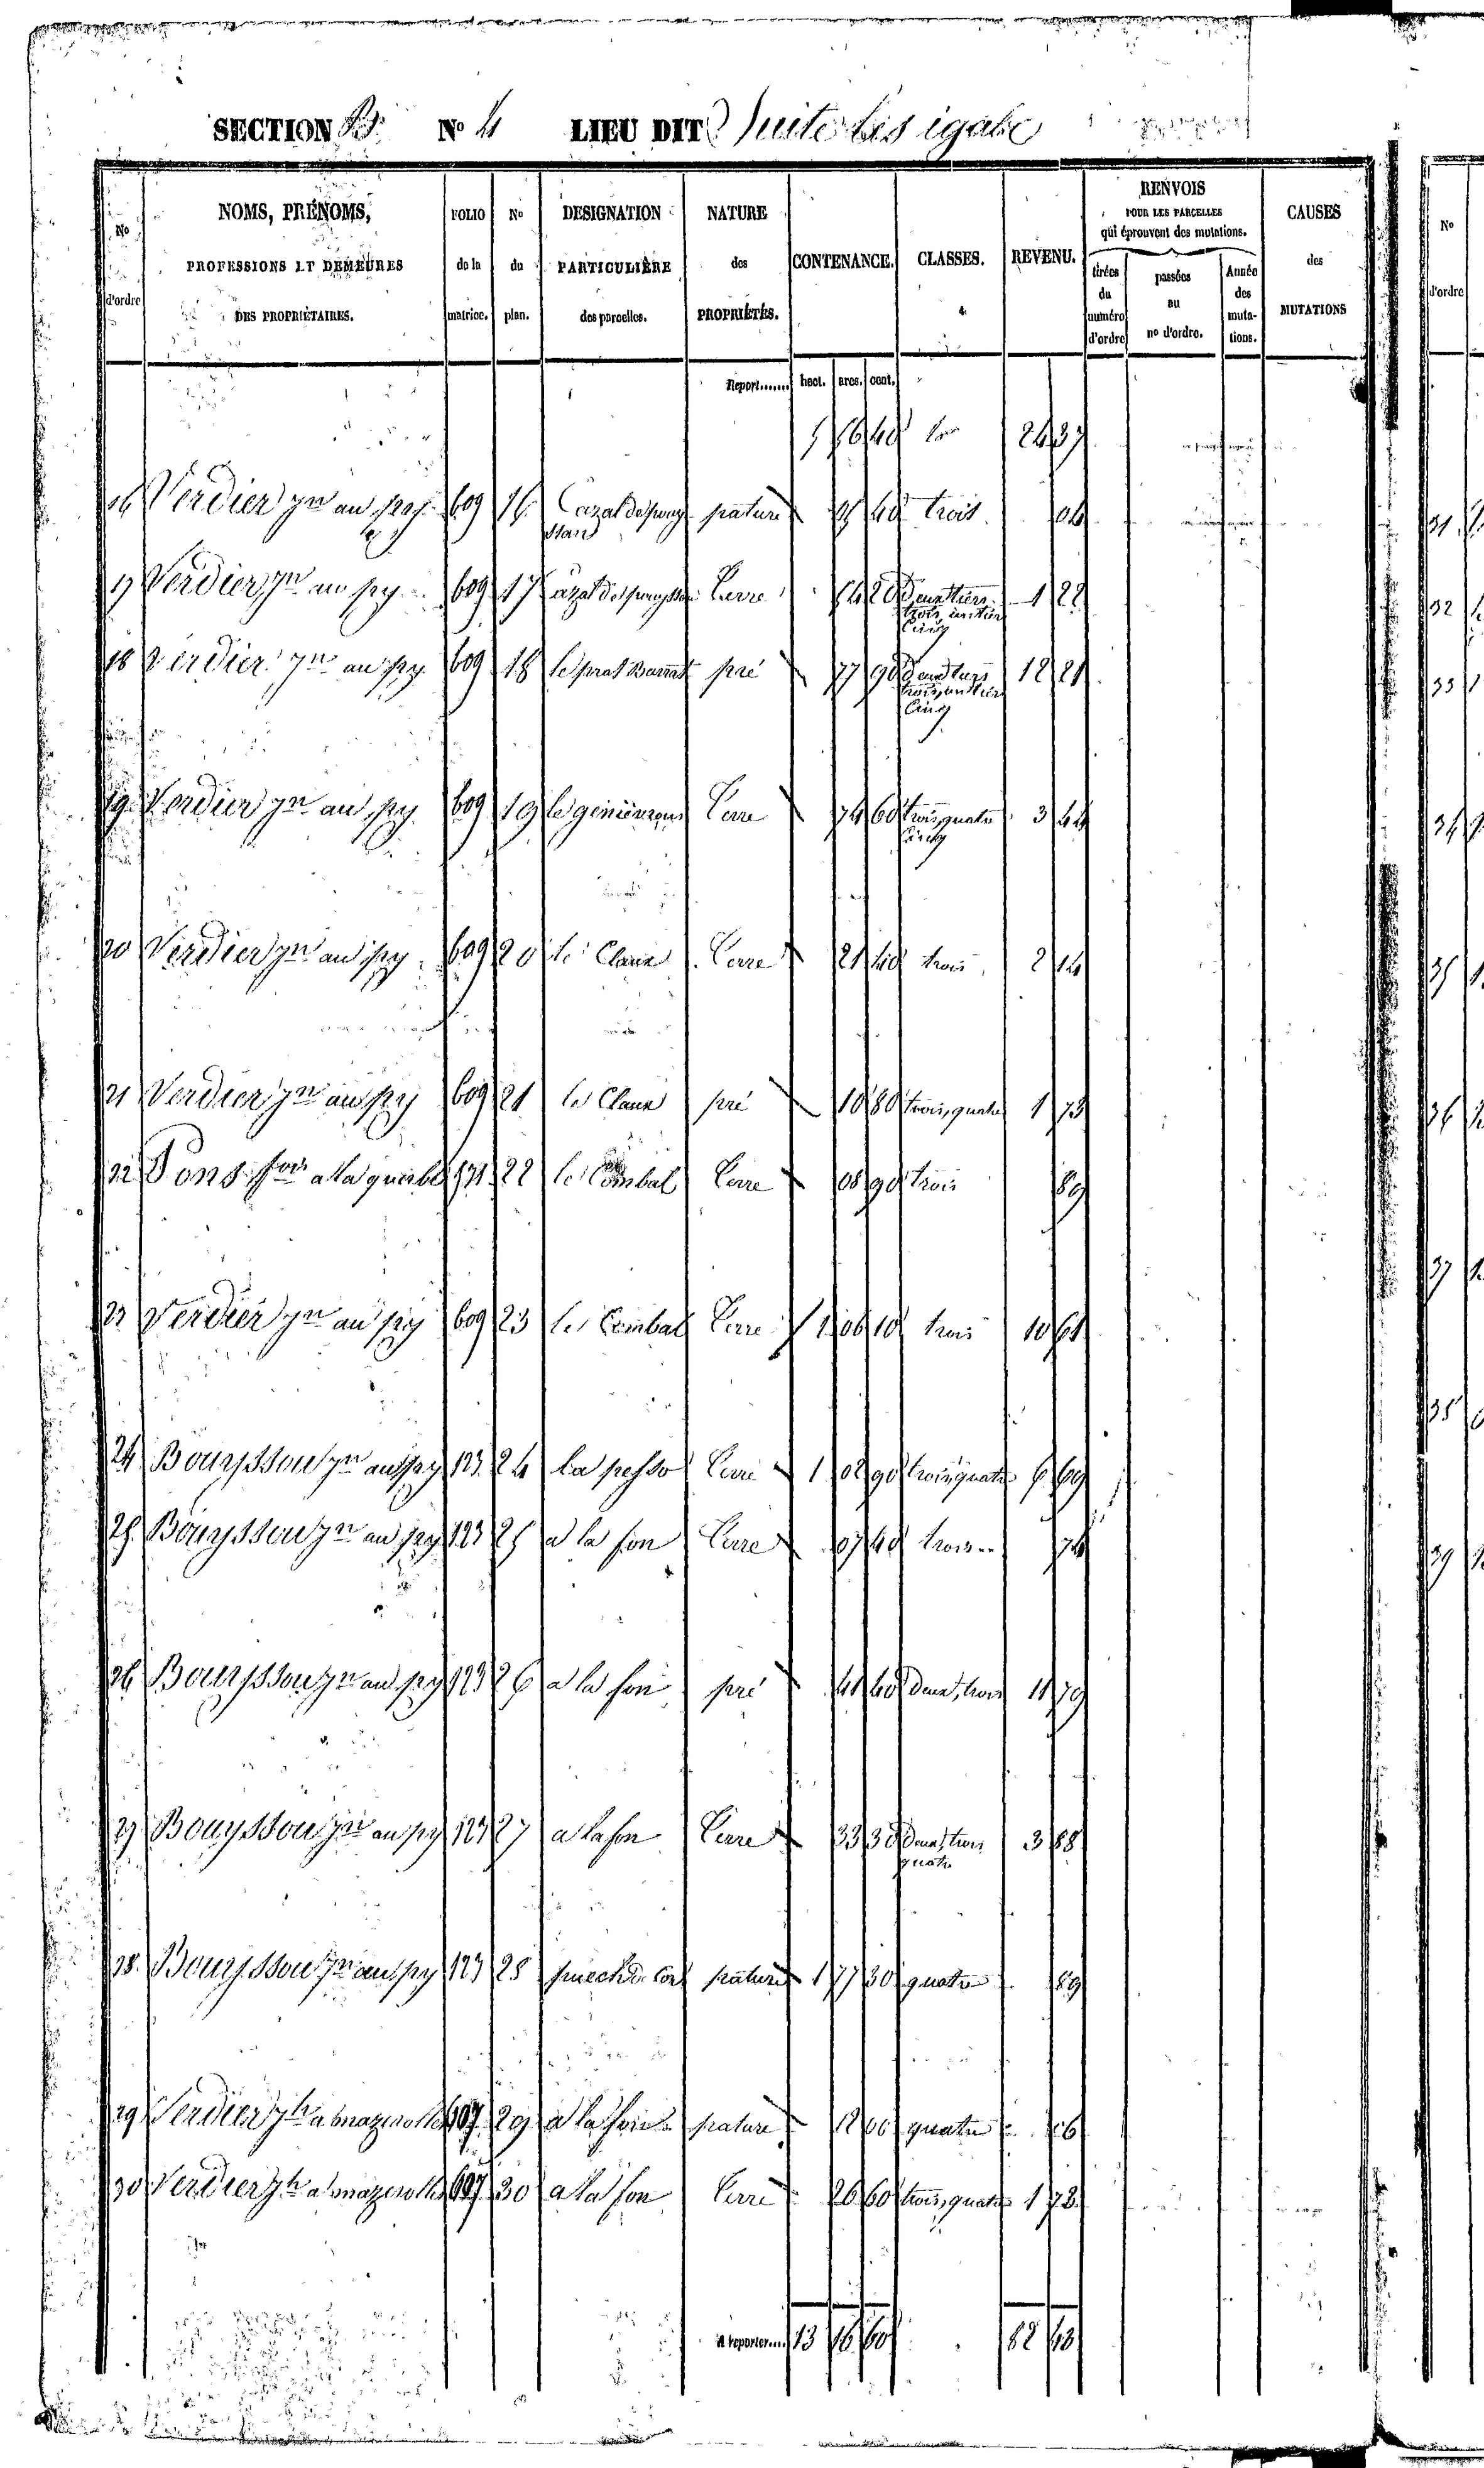 SECTION B. No 4 LIEU DIT Suite Les igabe
No d'ordre
NOMS, PRÉNOMS, PROFESSIONS ET DEMEURES DES PROPRIÉTAIRES.
FOLIO de la matrice.
No du plan.
DESIGNATION PARTICULIÈRE des parcelles.
NATURE des PROPRIÉTÉS.
CONTENANCE.
CLASSES.
REVENU.
RENVOIS POUR LES PARCELLES qui éprouvent des mutations.
tirées du numéro d'ordre
passées au no d'ordre.
Année des mutations.
CAUSES des MUTATIONS
Report....... hect. ares. cent.
40 24 37
16 Verdier jn au puy 609 16 pature 40 trois 04
17 Verdier jn au puy 609 17 Terre 20 Deux tiers 1 22
trois, un tiers
Cinq
18 Verdier jn au puy 609 18 le prat Barrat pré 77 90 Deux tiers 12 21
trois, un tiers
Cinq
19 Verdier jn au puy 609 19 le genievrou Terre 74 60 trois, quatre 3 44
Cinq
20 Verdier jn au puy 609 20 le Claux Terre 21 40 trois 2 14
21 Verdier jn au puy 609 21 le Claux pré 10 80 trois, quatre 1 73
22 Pons 22 le Combal Terre 08 90 trois 89
23 Verdier jn au puy 609 23 le Combal Terre 1 06 10 trois 10 61
24 Bouyssou jn au puy 123 24 la pesso Terre 1 02 90 trois, quatre 6 69
25 Bouyssou jn au puy 123 25 a la fon Terre 07 40 trois 74
26 Bouyssou jn au puy 123 26 a la fon pré 41 40 Deux, trois 11 79
27 Bouyssou jn au puy 123 27 a la fon Terre 33 30 Deux, trois 3 88
quatre
28 Bouyssou jn au puy 123 28 pature 1 77 30 quatre 89
29 Verdier jh a mazerolles 607 29 a la fon pature 12 00 quatre 06
30 Verdier jh a mazerolles 607 30 a la fon Terre 26 60 trois, quatre 1 73
A reporter.... 13 16 60 82 43
No d'ordre
31
32
33
34
35
36
37
38
39